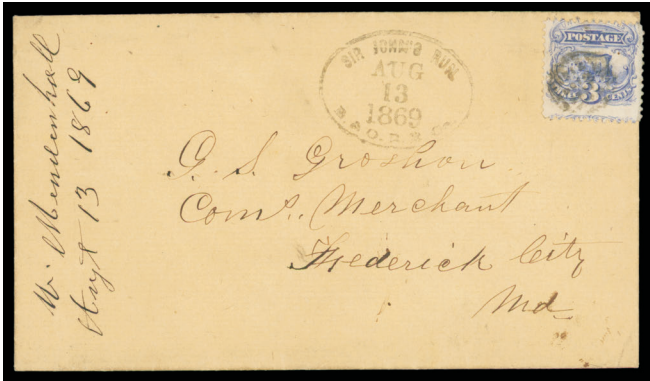 W. Mendenhall
Augt 13 1869
SIR JOHN'S RUN
AUG
13
1869
B. & O. R. R. Co
POSTAGE
3
CENTS
G. S. Groshon
Coms. Merchant
Frederick City
Md